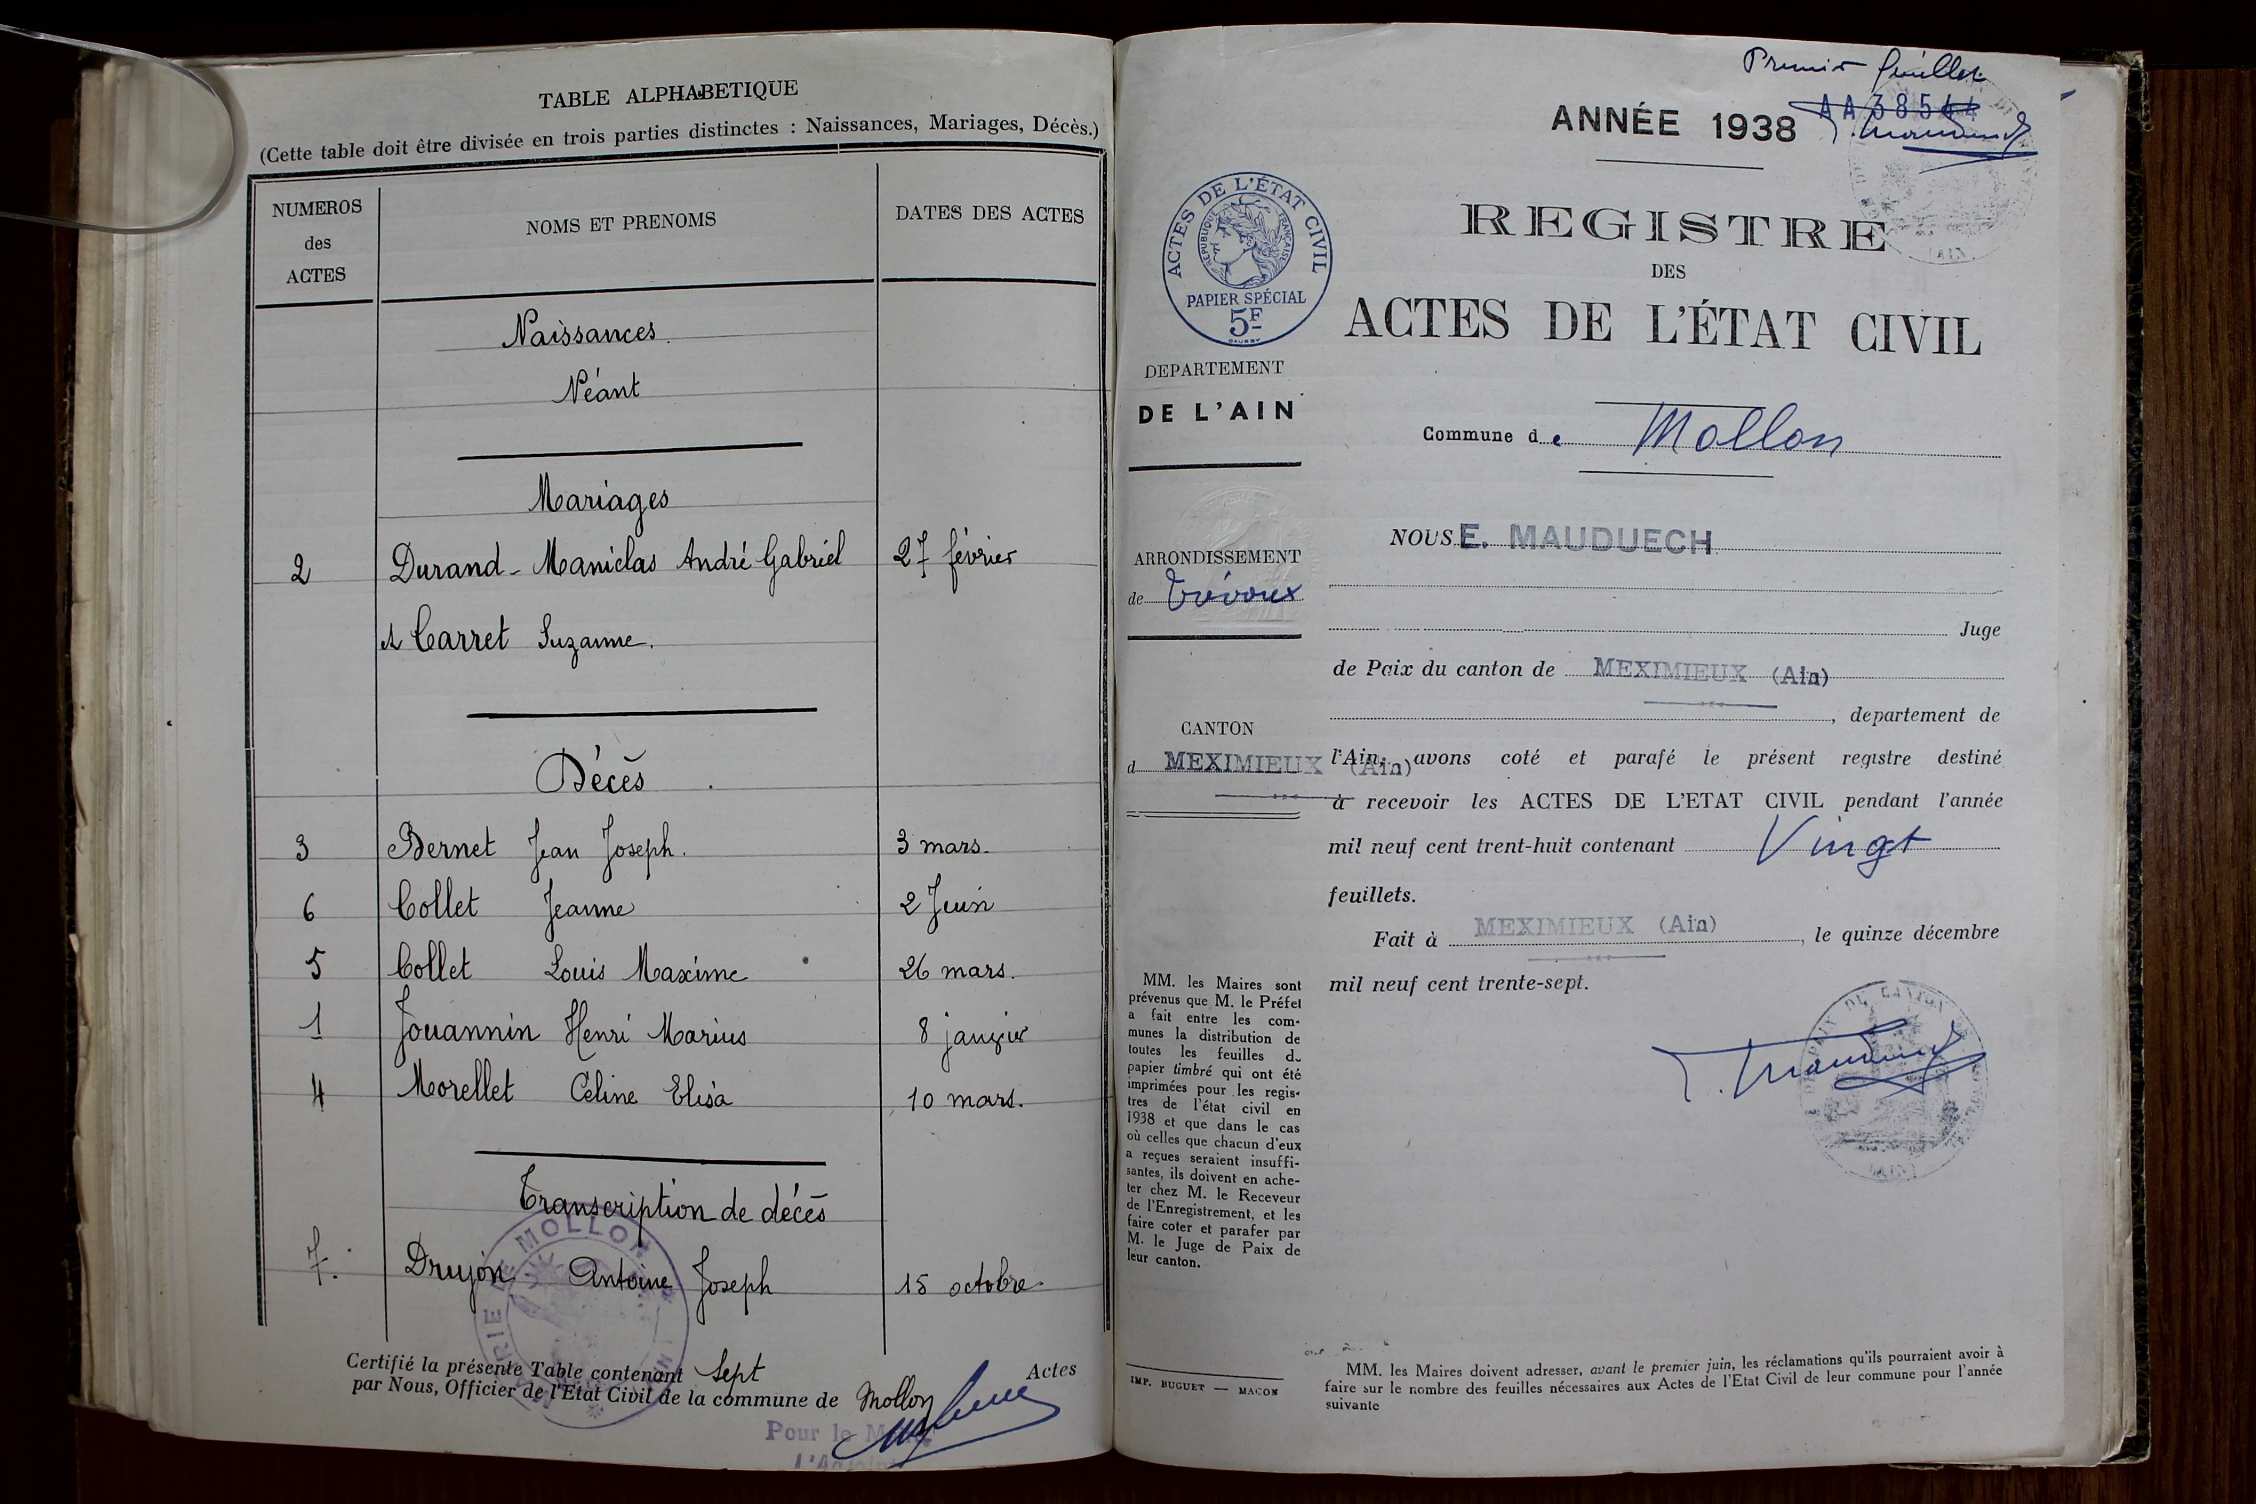 TABLE ALPHABETIQUE
(Cette table doit être divisée en trois parties distinctes : Naissances, Mariages, Décès.)
NUMEROS
des
ACTES
NOMS ET PRENOMS
DATES DES ACTES
Naissances.
Néant
Mariages
2 Durand - Maniclas André Gabriel 27 février
et Carret Suzanne.
Décès
3 Bernet Jean Joseph. 3 mars.
6 Collet Jeanne 2 Juin
5 Collet Louis Maxime 26 mars.
1 Jouannin Henri Marius 8 janvier
4 Morellet Céline Elisa 10 mars.
Transcription de décès
7. Drujon Antoine Joseph 15 octobre.
Certifié la présente Table contenant Sept Actes
par Nous, Officier de l'Etat Civil de la commune de Mollon
MAIRIE DE MOLLON
Pour le
Premier feuillet
AA38544
ANNÉE 1938
ACTES DE L'ÉTAT CIVIL
RÉPUBLIQUE FRANÇAISE
PAPIER SPÉCIAL
5F
REGISTRE
DES
ACTES DE L'ÉTAT CIVIL
DEPARTEMENT
DE L'AIN
Commune de Mollon
ARRONDISSEMENT
de Trévoux
CANTON
d MEXIMIEUX (Ain)
NOUS E. MAUDUECH
Juge
de Paix du canton de MEXIMIEUX (Ain)
, departement de
l'Ain, avons coté et parafé le présent registre destiné
à recevoir les ACTES DE L'ETAT CIVIL pendant l'année
mil neuf cent trent-huit contenant Vingt
feuillets.
Fait à MEXIMIEUX (Ain), le quinze décembre
mil neuf cent trente-sept.
MM. les Maires sont
prévenus que M. le Préfet
a fait entre les com-
munes la distribution de
toutes les feuilles du
papier timbré qui ont été
imprimées pour les regis-
tres de l'état civil en
1938 et que dans le cas
où celles que chacun d'eux
a reçues seraient insuffi-
santes, ils doivent en ache-
ter chez M. le Receveur
de l'Enregistrement, et les
faire coter et parafer par
M. le Juge de Paix de
leur canton.
IMP. BUGUET — MACON
MM. les Maires doivent adresser, avant le premier juin, les réclamations qu'ils pourraient avoir à
faire sur le nombre des feuilles nécessaires aux Actes de l'Etat Civil de leur commune pour l'année
suivante